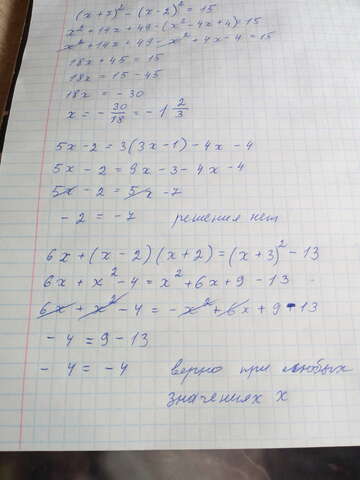 (x+7)² - (x-2)² = 15
x² + 14x + 49 - (x² - 4x + 4) = 15
x² + 14x + 49 - x² + 4x - 4 = 15
18x + 45 = 15
18x = 15 - 45
18x = -30
x = - 30/18 = -1 2/3
5x - 2 = 3(3x - 1) - 4x - 4
5x - 2 = 9x - 3 - 4x - 4
5x - 2 = 5x - 7
-2 = -7 решения нет
6x + (x-2)(x+2) = (x+3)² - 13
6x + x² - 4 = x² + 6x + 9 - 13
6x + x² - 4 = -x² + 6x + 9 - 13
-4 = 9 - 13
-4 = -4 верно при любых
значениях x